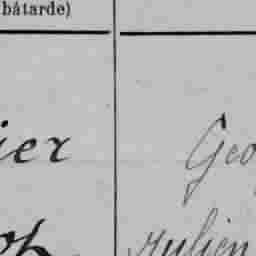 bâtarde)
ier Geo
Julien